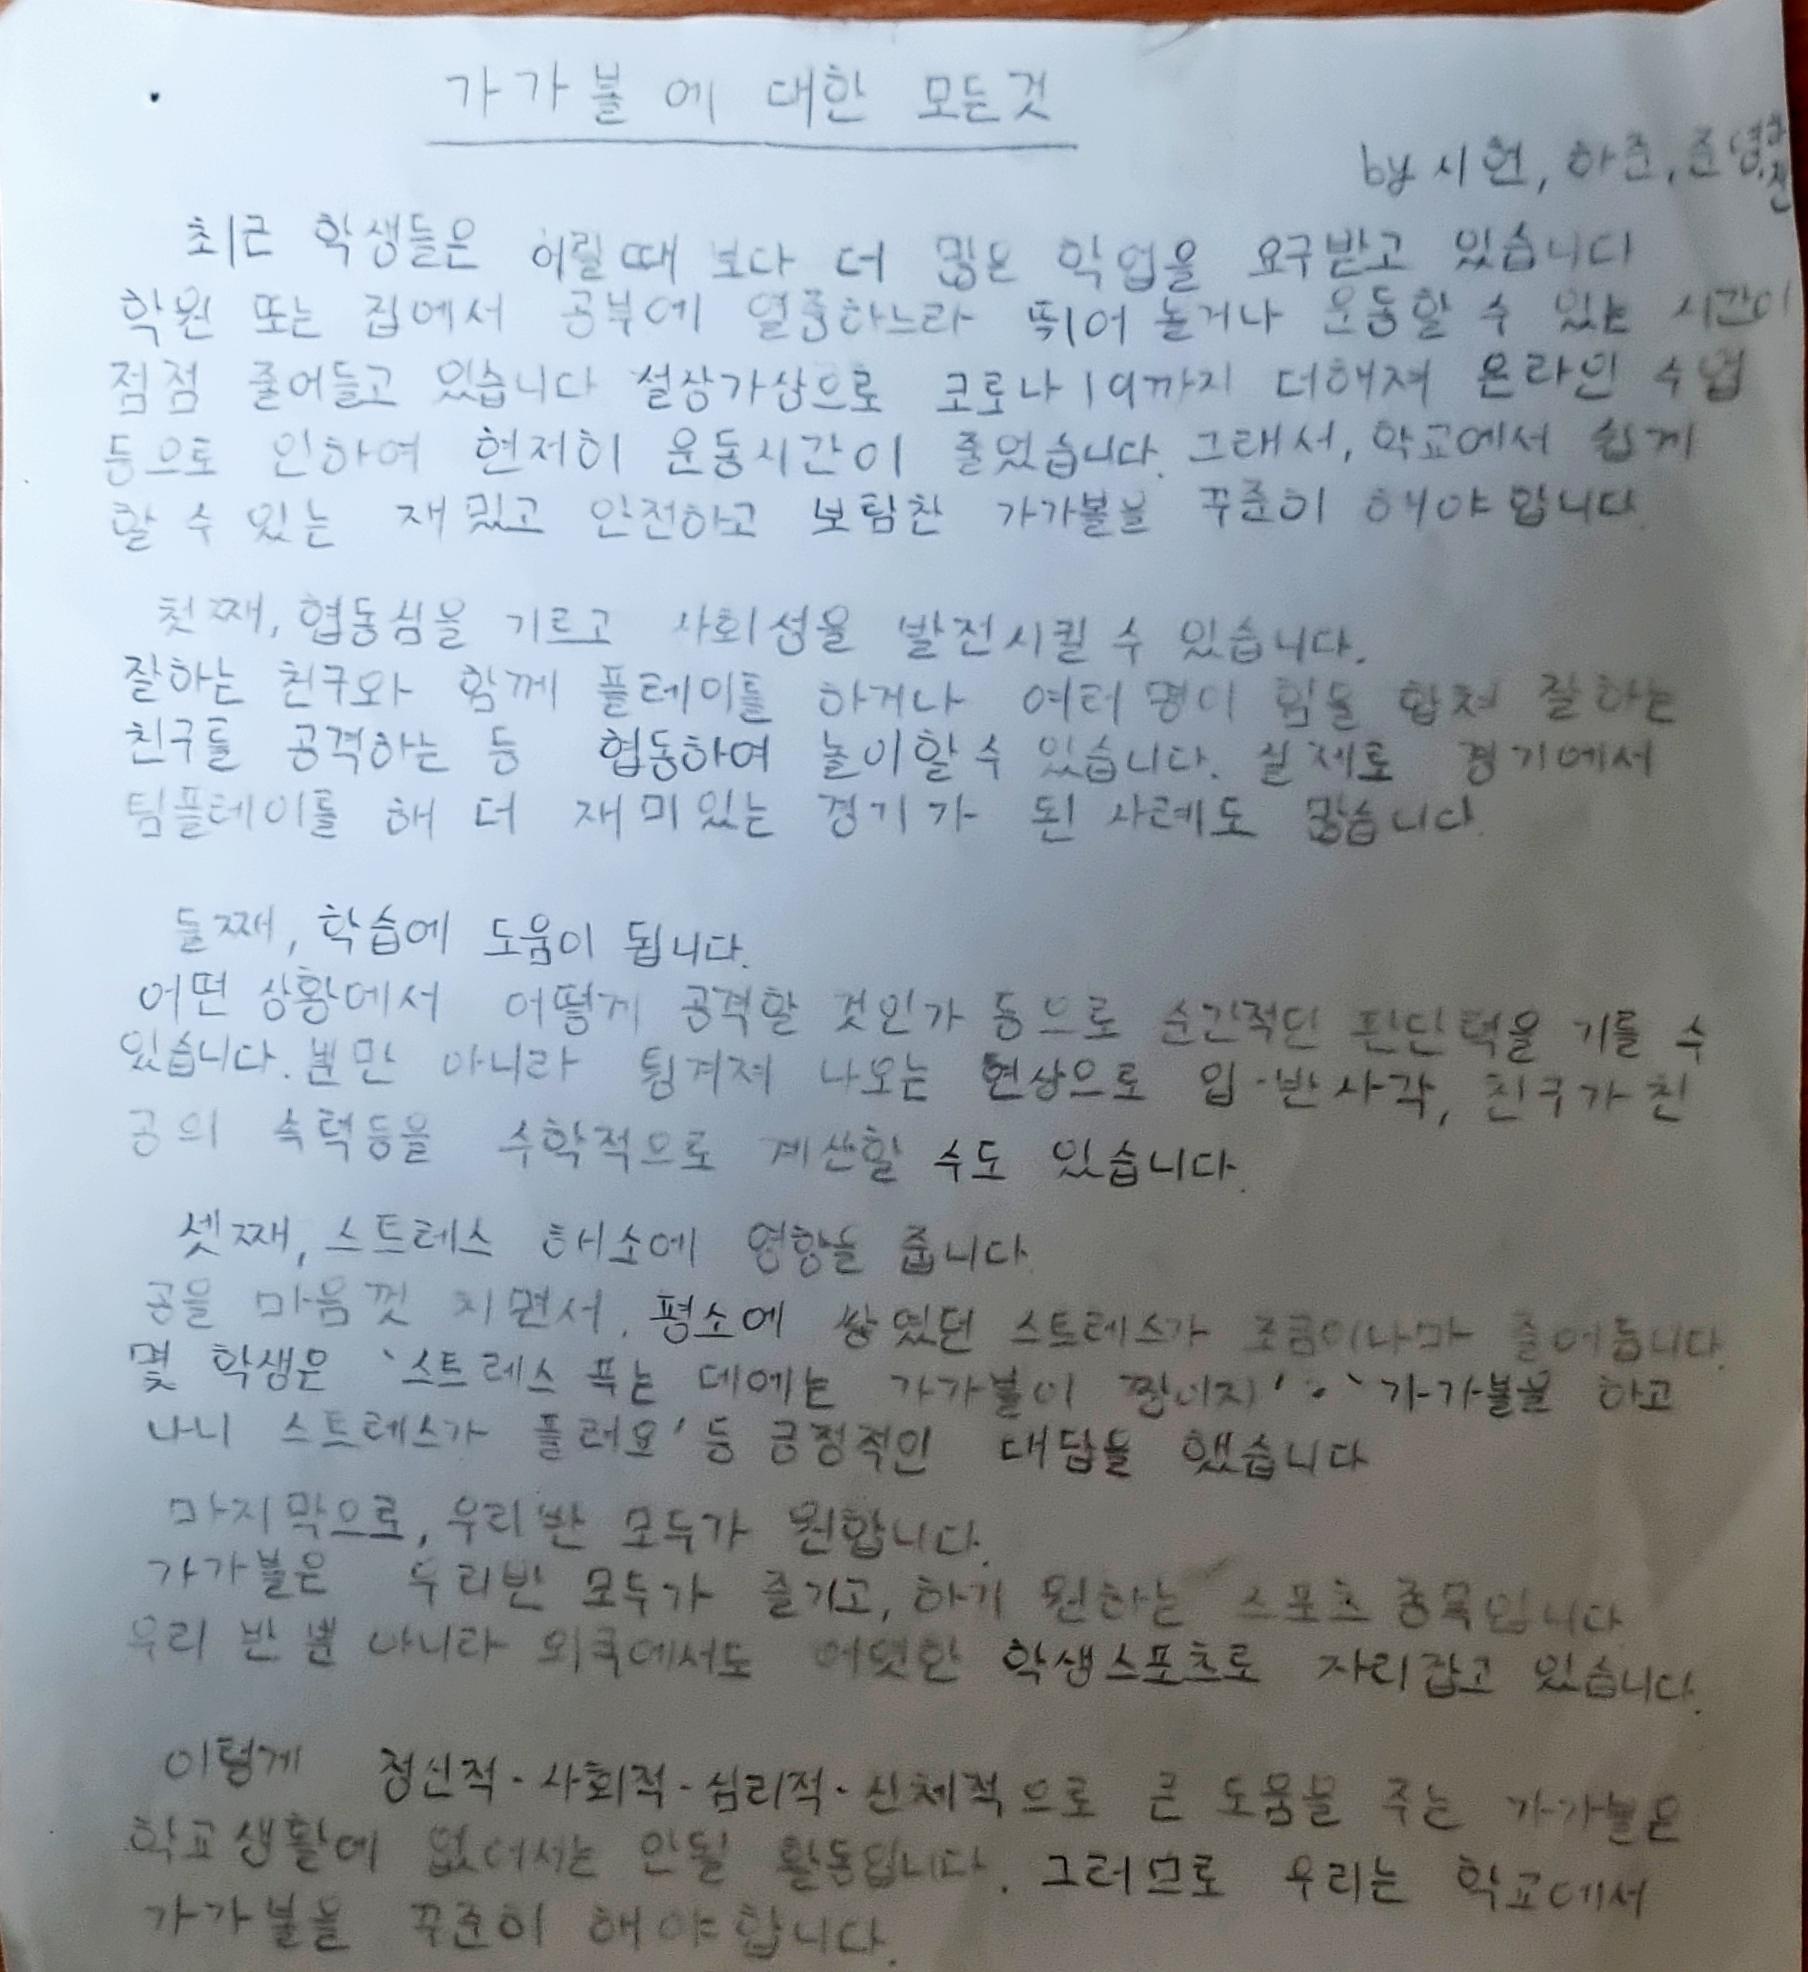 가가볼에 대한 모든것
by 시현, 하준, 준영
최근 학생들은 어릴때 보다 더 많은 학업을 요구받고 있습니다
학원 또는 집에서 공부에 열중하느라 뛰어 놀거나 운동할 수 있는 시간이
점점 줄어들고 있습니다 설상가상으로 코로나19까지 더해져 온라인 수업
등으로 인하여 현저히 운동시간이 줄었습니다. 그래서, 학교에서 쉽게
할 수 있는 재밌고 안전하고 보탬찬 가가볼을 꾸준히 해야합니다.
첫째, 협동심을 기르고 사회성을 발전시킬 수 있습니다.
잘하는 친구와 함께 플레이를 하거나 여러 명이 힘을 합쳐 잘하는
친구를 공격하는 등 협동하여 놀이할 수 있습니다. 실제로 경기에서
팀플레이를 해 더 재미있는 경기가 된 사례도 많습니다.
둘째, 학습에 도움이 됩니다.
어떤 상황에서 어떻게 공격할 것인가 등으로 순간적인 판단력을 기를 수
있습니다. 뿐만 아니라 튕겨져 나오는 현상으로 입·반사각, 친구가 친
공의 속력등을 수학적으로 계산할 수도 있습니다.
셋째, 스트레스 해소에 영향을 줍니다.
공을 마음껏 치면서, 평소에 쌓였던 스트레스가 조금이나마 줄어듭니다.
몇 학생은 '스트레스 푸는 데에는 가가볼이 짱이지' · '가가볼을 하고
나니 스트레스가 풀려요' 등 긍정적인 대답을 했습니다
마지막으로, 우리반 모두가 원합니다.
가가볼은 우리반 모두가 즐기고, 하기 원하는 스포츠 종목입니다
우리 반 뿐 아니라 외국에서도 어엿한 학생스포츠로 자리잡고 있습니다.
이렇게 정신적·사회적·심리적·신체적으로 큰 도움을 주는 가가볼은
학교생활에 없어서는 안될 활동입니다. 그러므로 우리는 학교에서
가가볼을 꾸준히 해야합니다.